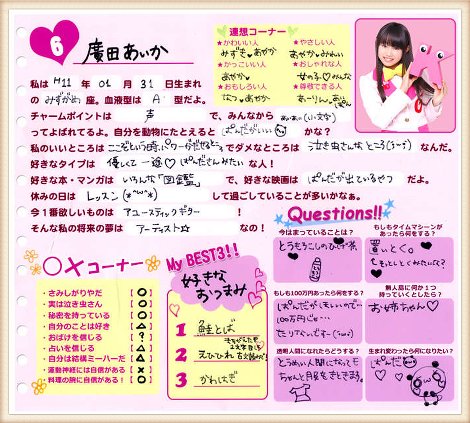 6
廣田あいか
私は H11 年 01 月 31 日生まれ
の みずがめ 座。血液型は A 型だよ。
チャームポイントは 声 で、みんなから あぃぁぃ(小文字)
ってよばれてるよ。自分を動物にたとえると ぱんだがいい かな?
私のいいところは で ダメなところは 泣き虫さんな ところ なんだ。
好きなタイプは 優しくて一途♡ぱんださんみたい な人!
好きな本・マンガは いろんな「図鑑」 で、好きな映画は ぱんだが出ているやつ だよ。
休みの日は レッスン して過ごしていることが多いかなぁ。
今1番欲しいものは アコースティックギター !
そんな私の将来の夢は アーティスト☆ なの!
連想コーナー
★かわいい人
みずき♡あやか
★かっこいい人
あやか♡
★おもしろい人
なつ♡あやか
★やさしい人
あやか♡みれい
★おしゃれな人
女の子♡みんな
★尊敬できる人
○×コーナー
・さみしがりやだ 【○】
・実は泣き虫さん 【○】
・秘密を持っている 【○】
・自分のことは好き 【△】
・おばけを信じる 【?】
・占いを信じる 【△】
・自分は結構ミーハーだ 【△】
・運動神経には自信がある 【×】
・料理の腕に自信がある! 【○】
My BEST3!!
好きな
おつまみ
1 鮭とば
2 えひひれ
3 かわはぎ
Questions!!
今はまっていることは?
とうもろこしのひげ茶
もしもタイムマシーンが
あったら何をする?
置いとく。
もしも100万円あったら何をする?
ぱんだがほしいので…
100万円じゃ…
たりないです…
無人島に何か1つ
持っていくとしたら?
お姉ちゃん♡
透明人間になれたらどうする?
とうめい人間になっても
ちゃんと月謝をとどきます。
生まれ変わったら何になりたい?
ぱんだ♡